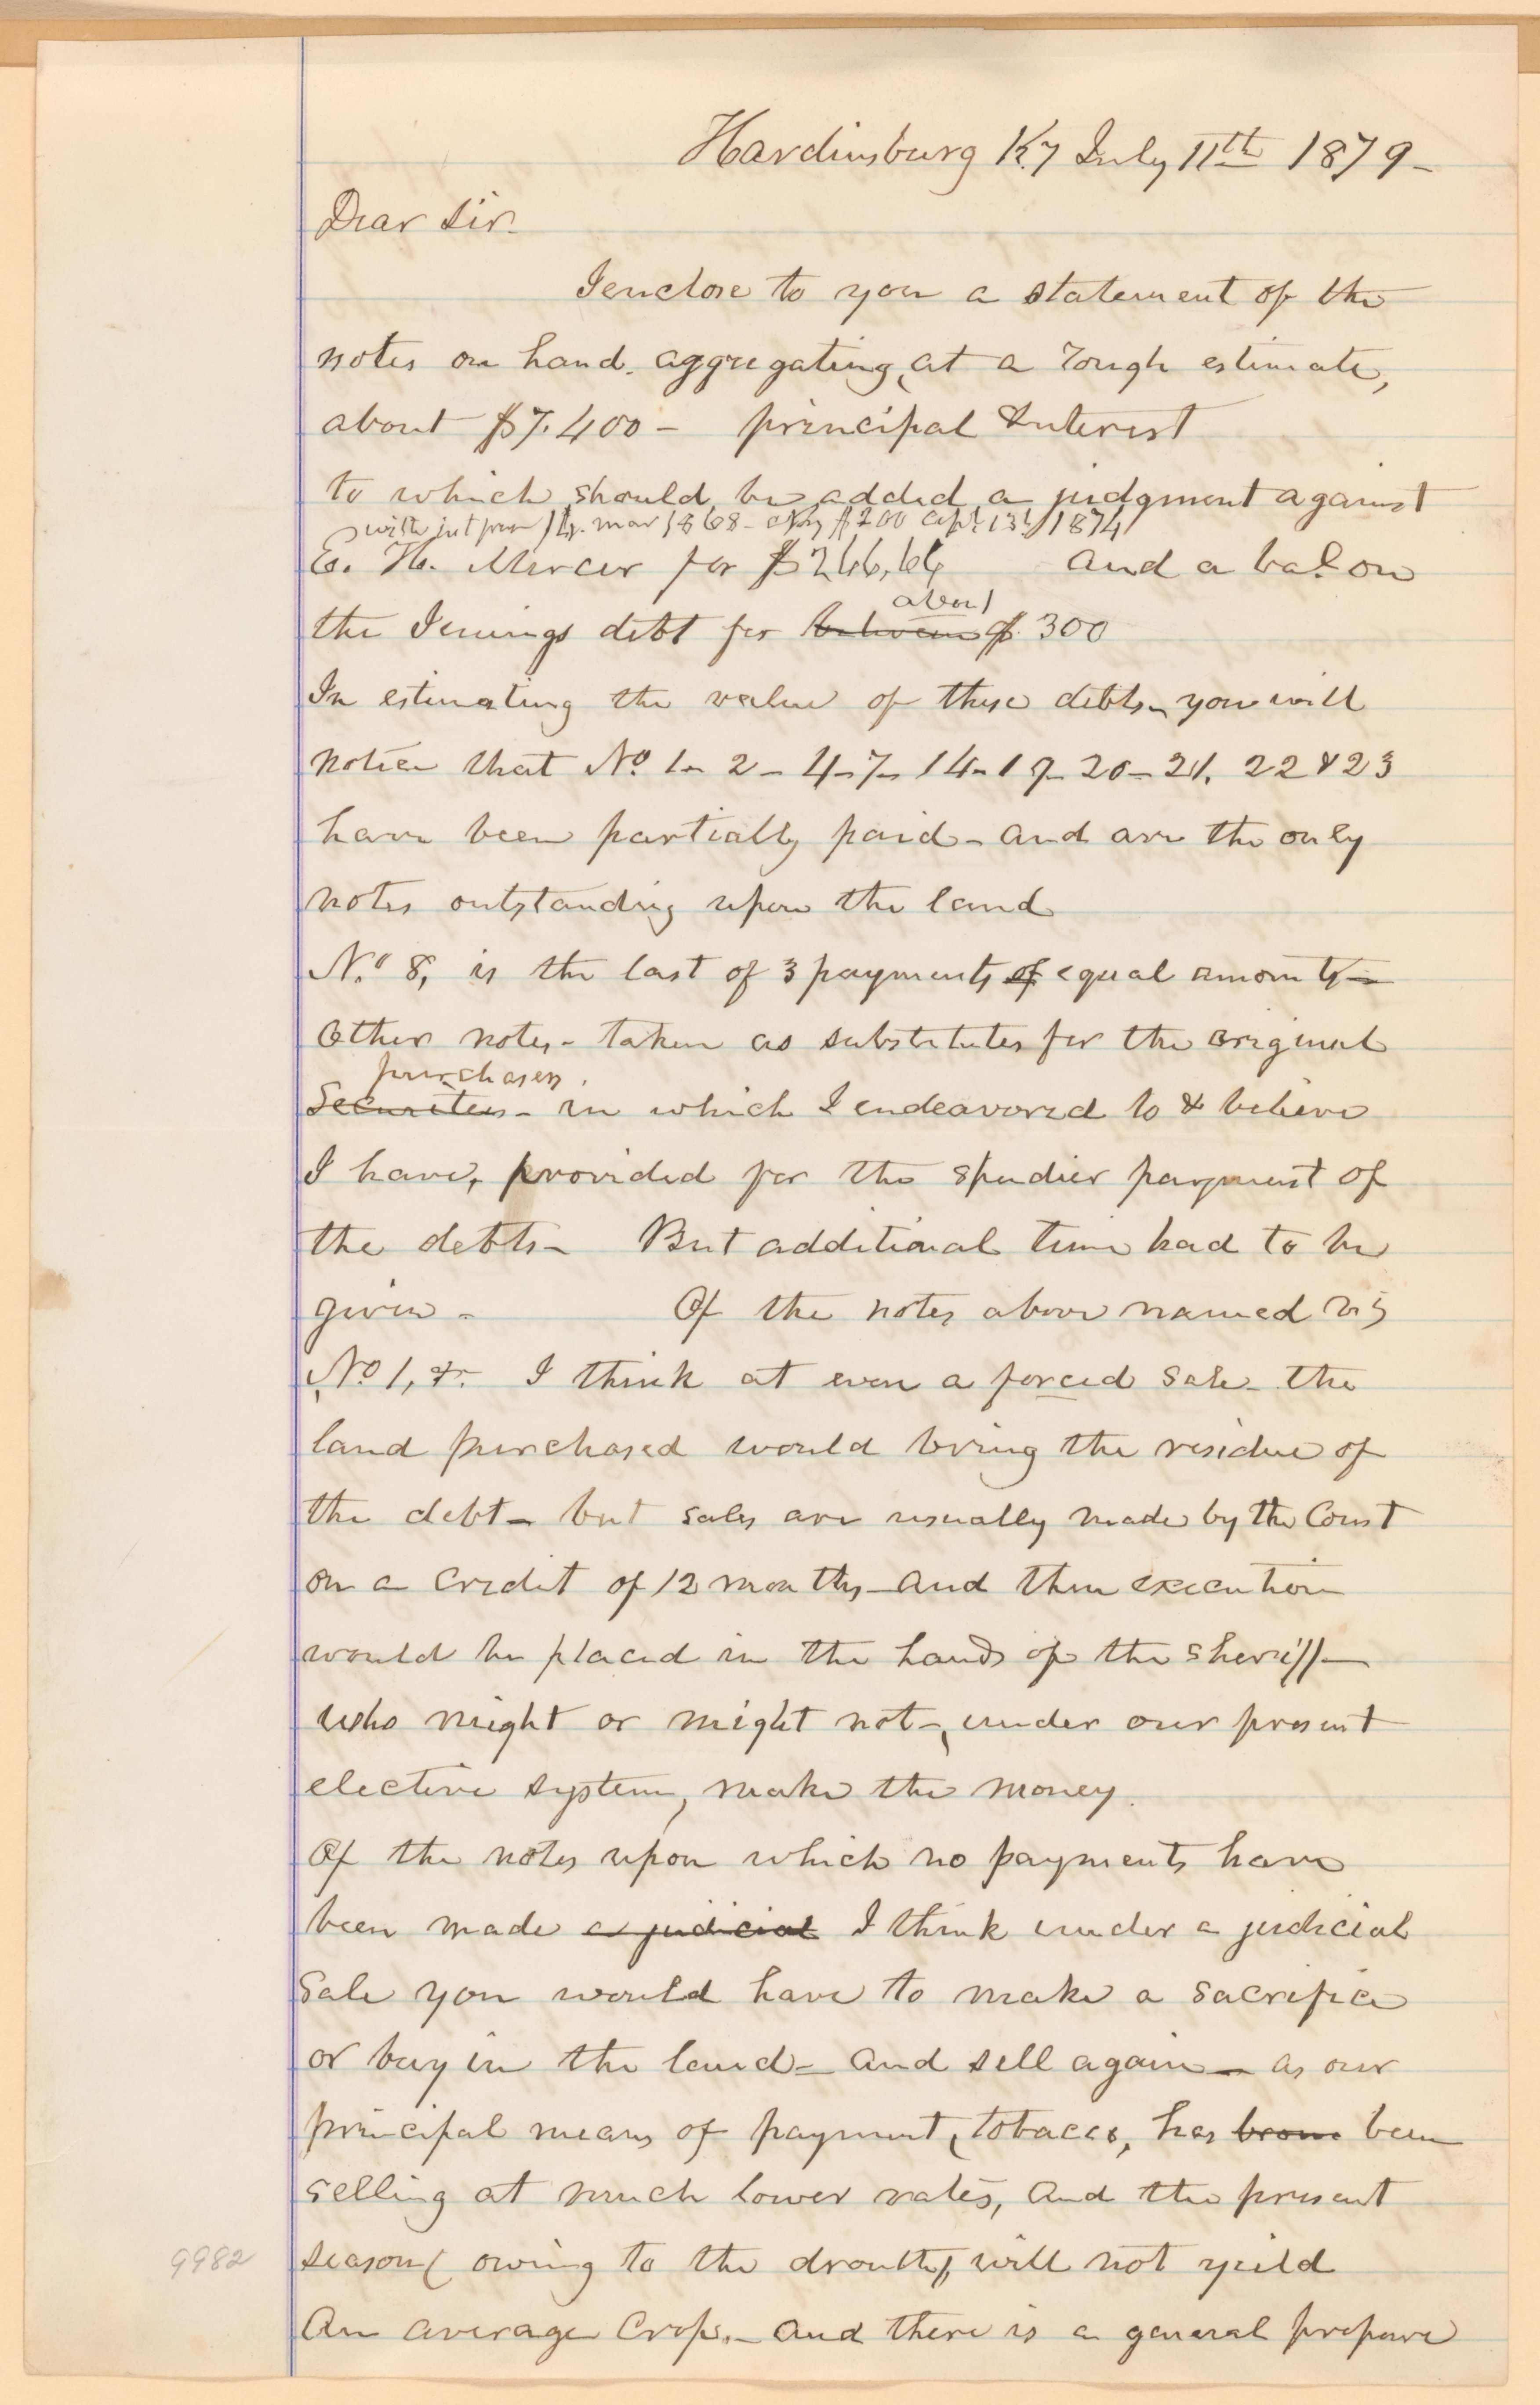 Hardinsburg Ky July 11th 1879-
Dear Sir-
I enclose to you a statement of the
notes on hand. aggregating, at a rough estimate,
about $7.400 - principal & Interest
to which should be added a judgment against
with int from 14. mar 1868 - $200 Apl 13th 1874
E. H. Mercer for $266,66 and a bal. on
about
the Jennings debt for between $ 300
In estimating the value of these debts - you will
notice that No. 1 - 2 - 4 - 7 - 14 - 19 - 20 - 21. 22 & 23
have been partially paid - and are the only
notes outstanding upon the land
No. 8, is the last of 3 payments of equal amounts -
Other notes - taken as substitutes for the original
purchasers.
Securities - in which I endeavored to & believe
I have, provided for the speedier payment of
the debts - But additional time had to be
given - Of the notes above named viz
No. 1, &c. I think at even a forced sale - the
land purchased would bring the residue of
the debt - but sales are usually made by the Court
on a credit of 12 months - and then execution
would be placed in the hands of the sheriff -
who might or might not -, under our present
elective system, make the money.
Of the notes upon which no payments have
been made a judicial I think under a judicial
Sale you would have to make a sacrifice
or buy in the land - and sell again - as our
principal means of payment, (tobacco, has been
selling at much lower rates, and the present
season ( owing to the drouth), will not yeild
An average Crop. - and there is a general prepare
9982